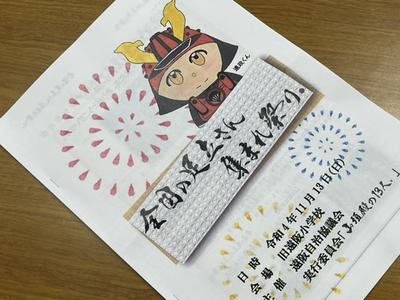 遠阪くん
全国の足立さん
集まれ祭り
日時 令和4年11月13日(日)
会場 旧遠阪小学校
主催 遠阪自治協議会
実行委員会「山垣殿の13人。」